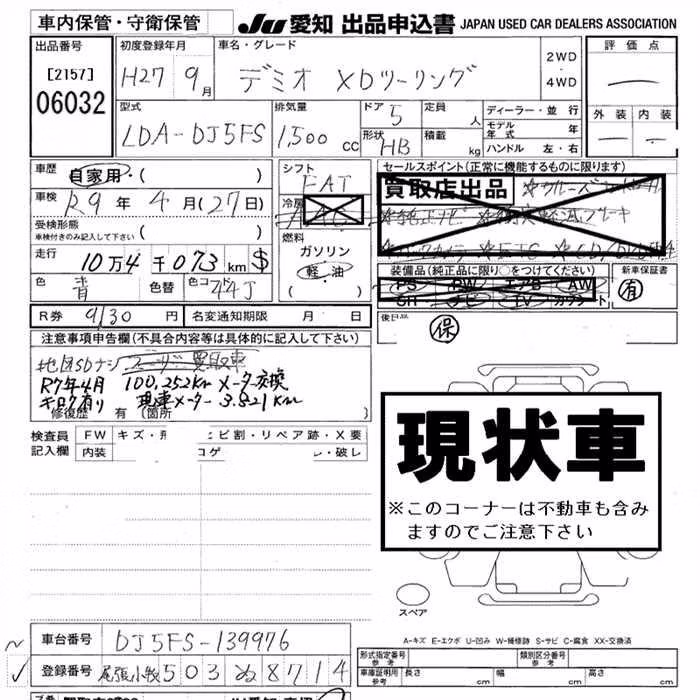 車内保管・守衛保管 JU 愛知 出品申込書 JAPAN USED CAR DEALERS ASSOCIATION
出品番号 初度登録年月 車名・グレード 評価点
[2157] H27 9月 デミオ XDツーリング 2WD 4WD
06032
型式 排気量 ドア 5 定員 人 ディーラー・並行 外装 内装
LDA-DJ5FS 1,500 cc 形状 HB 積載 kg モデル年式 年
ハンドル 左・右
車歴 自家用・( ) シフト FAT セールスポイント(正常に機能するものに限ります)
車検 R9 年 4 月(27日) 冷房 買取店出品
受検形態 車検付きのみ記入して下さい ( ) 燃料
走行 10万4千073km $ ガソリン 装備品(純正品に限り○をつけてください) 新車保証書
軽・油 PS PW エアB AW 有
色 青 色替 色コ ( ) SR ナビ TV カワシート
R券 9130 円 名変通知期限 月 日 後日 保
注意事項申告欄(不具合内容等は具体的に記入して下さい)
地図SDナシ ユーザー買取車
R7年4月 100,252km メーター交換
キロク有り 現車メーター 3,821km
修復歴 有 (箇所 )
検査員記入欄 FW キズ・ ヒビ割・リペア跡・X要
内装 コゲ ・破レ
現状車
※このコーナーは不動車も含みますのでご注意下さい
スペア
A-キズ E-エクボ U-凹み W-補修跡 S-サビ C-腐食 XX-交換済
車台番号 DJ5FS-139976
登録番号 尾張小牧 503 ぬ 8714
形式指定番号 参考 類別区分番号 参考
車庫証明用 参考 長さ cm 幅 cm 高さ cm